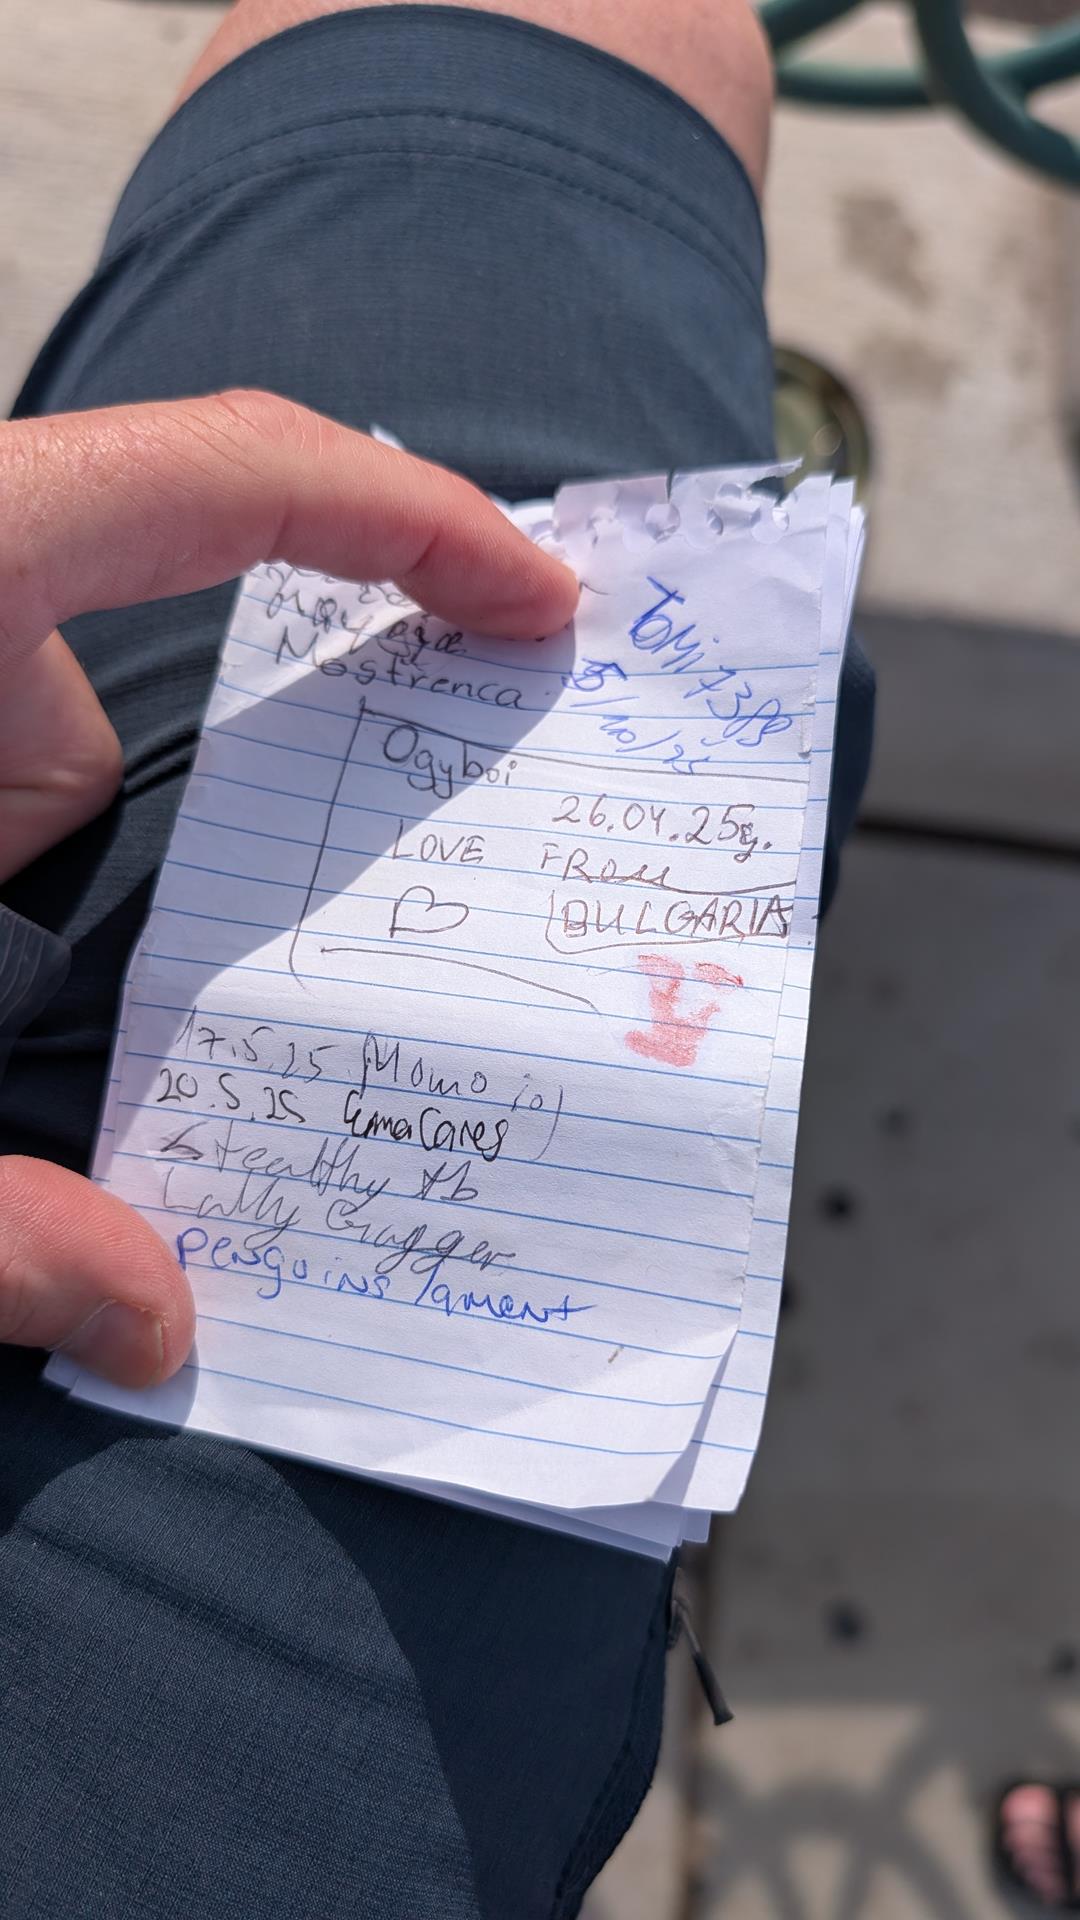 Mostrenca
Tomi7389
5/10/25
Ogyboi
26.04.25g.
LOVE FROM
BULGARIA
17.5.25 Momo
20.5.25 EmaCares
Stealthy
Lally Gragger
Penguins lament